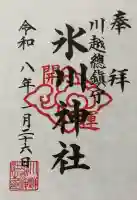 奉拝
川越總鎮守
氷川神社
開運
令和八年 月二十六日